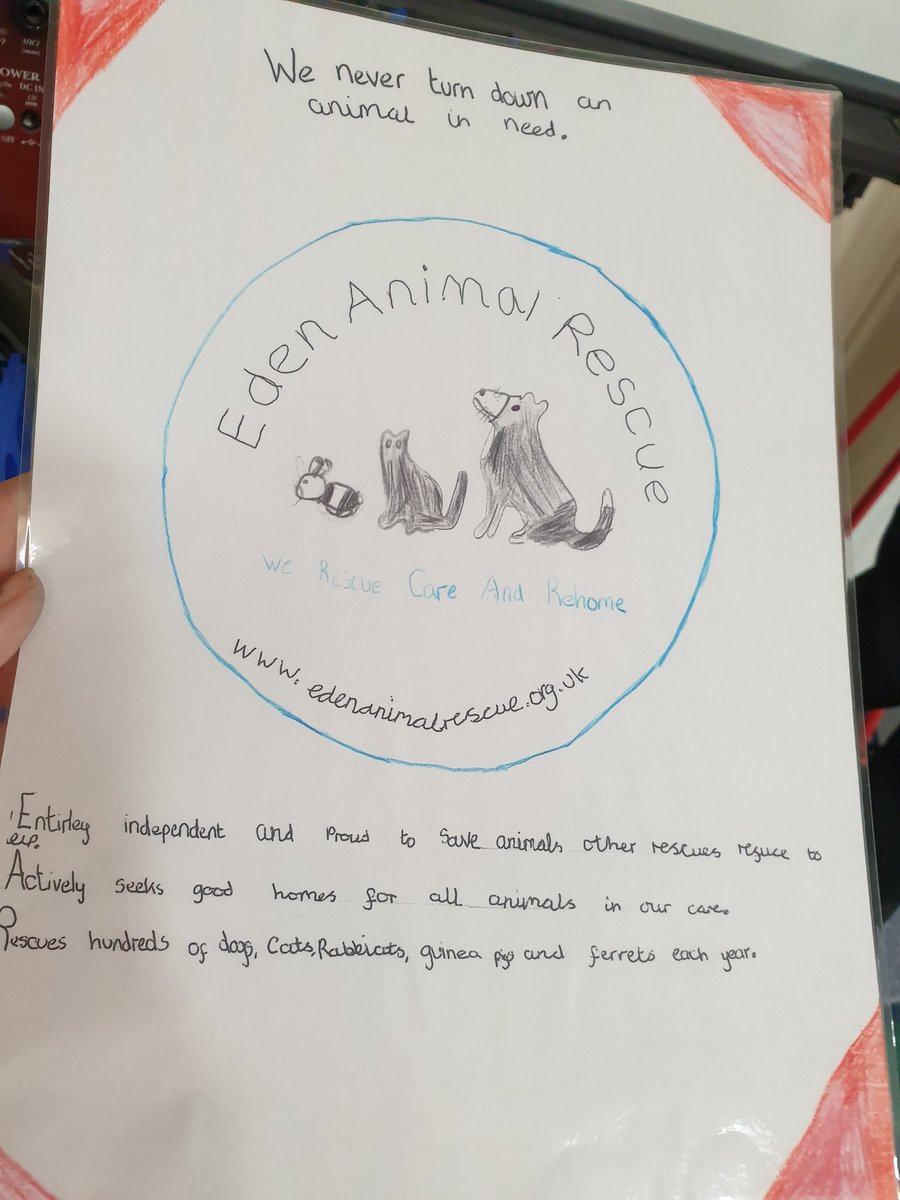 We never turn down an
animal in need.
Eden Animal Rescue
We Rescue Care And Rehome
www.edenanimalrescue.org.uk
Entirley independent and Proud to Save animals other rescues refuce to
Actively seeks good homes for all animals in our care.
Rescues hundreds of dogs, Cats, Rabbits, guinea pigs and ferrets each year.
OWER
DC IN
12V